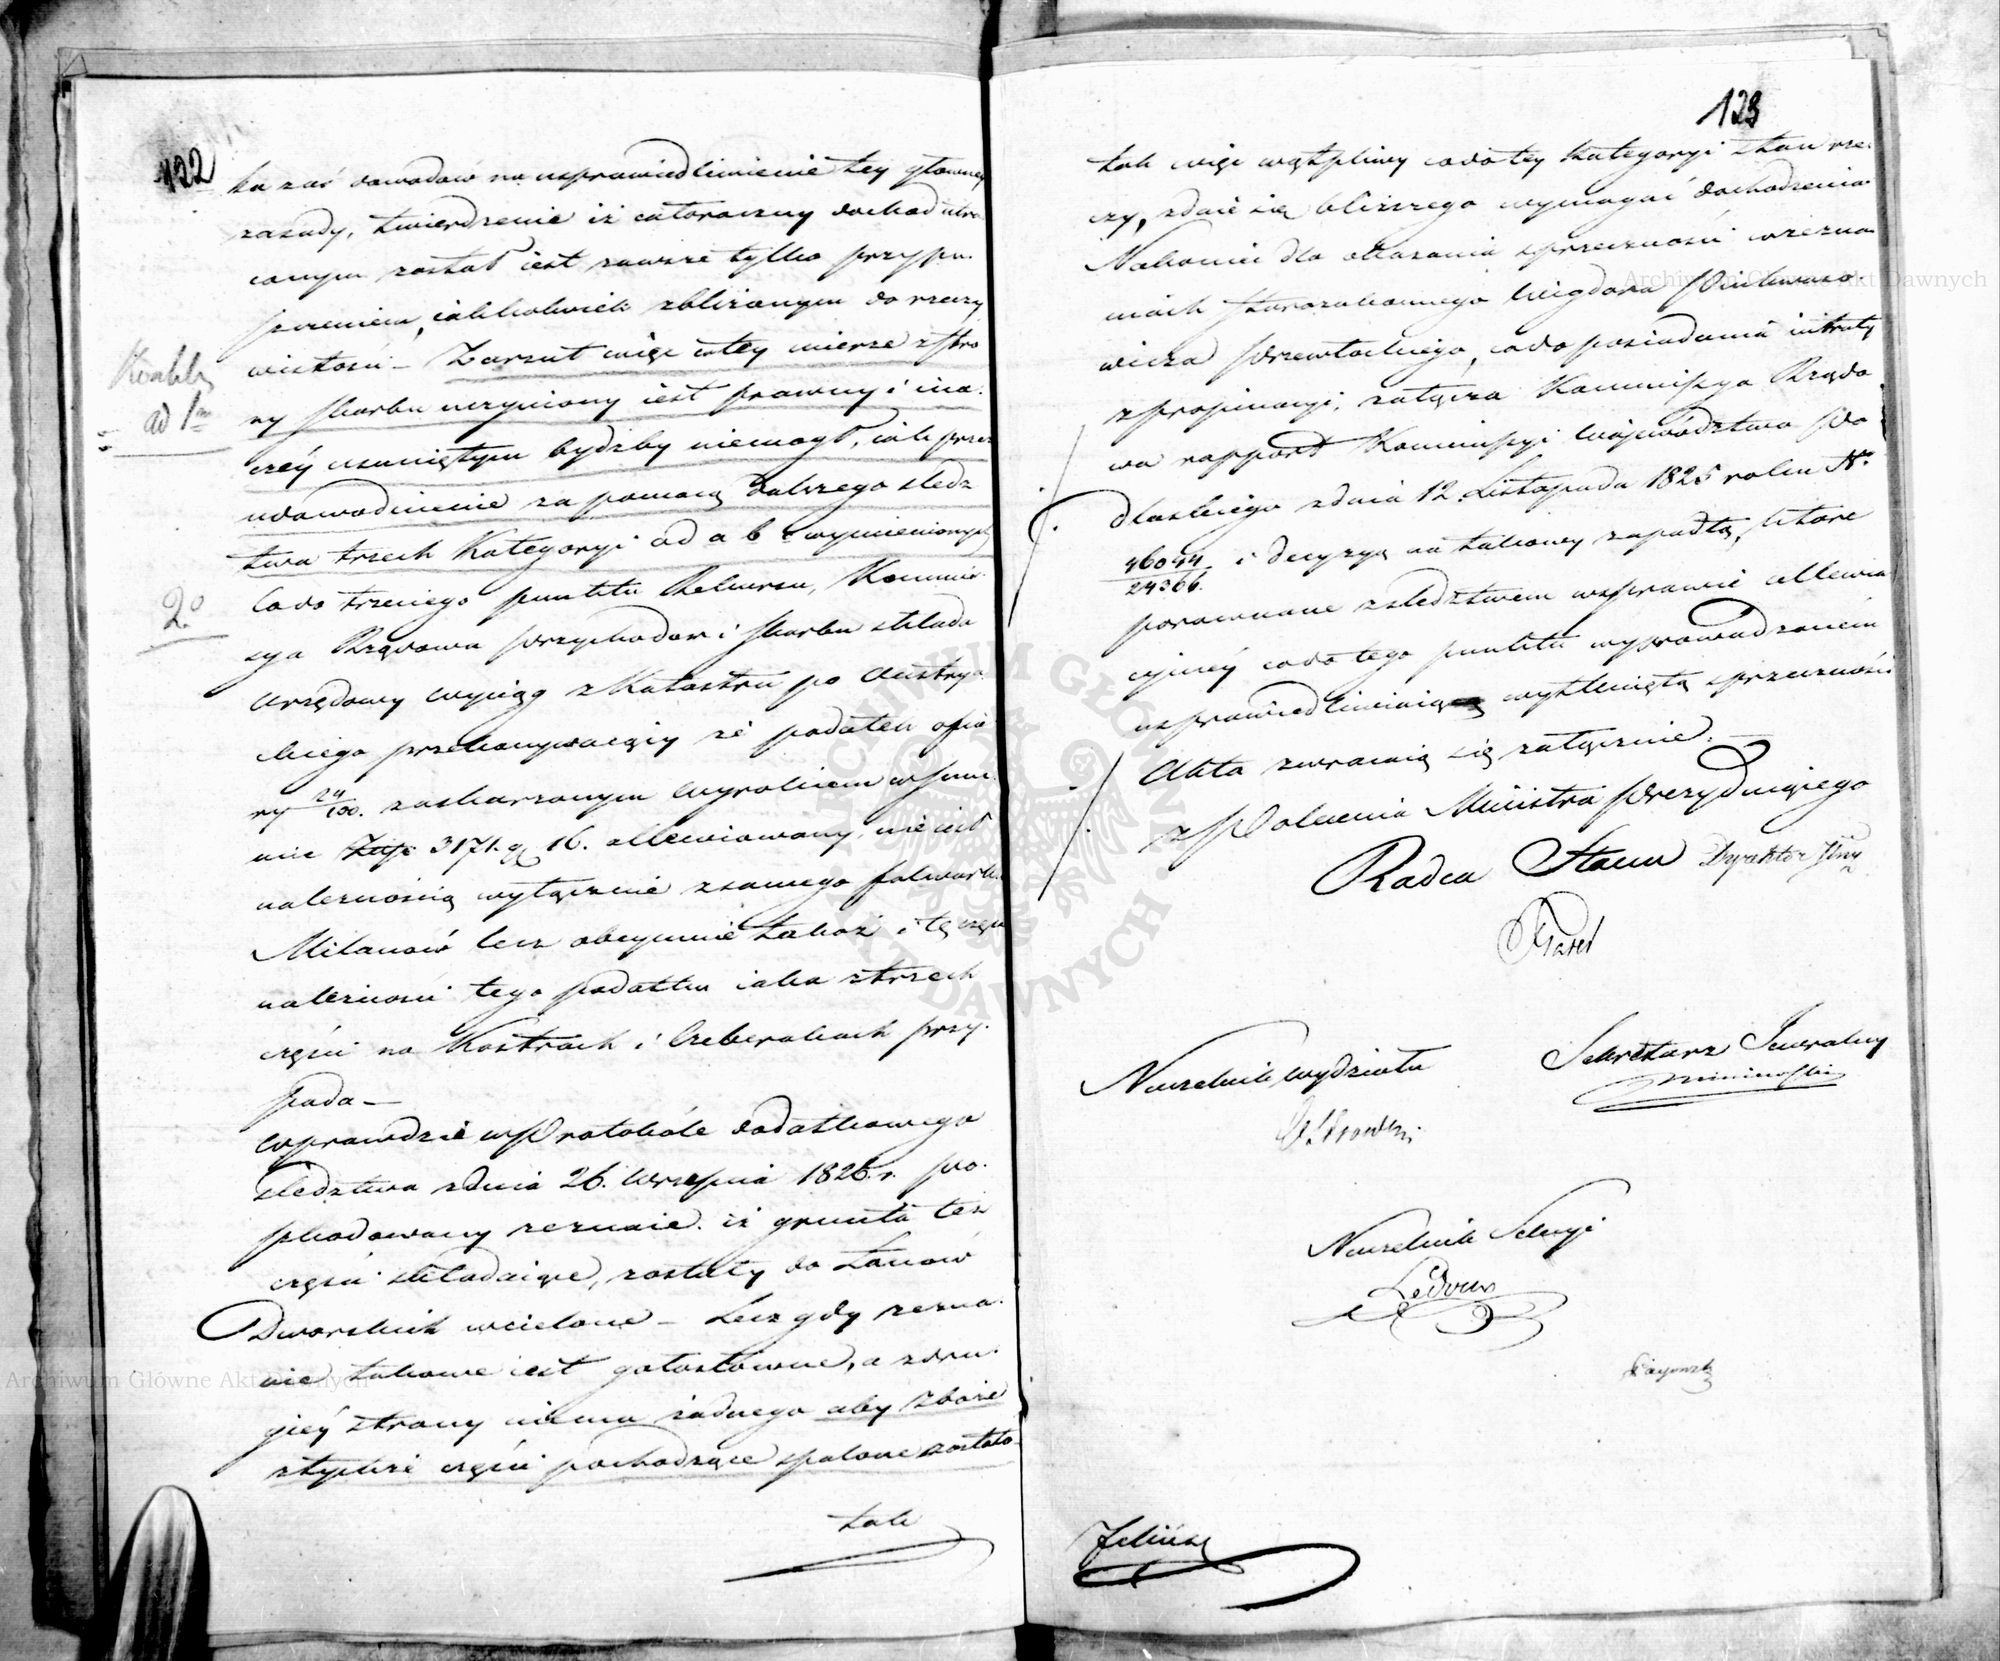 122
ka zaś dowodów na usprawiedliwienie tey główney
zasady, twierdzenie iż całoroczny dochód utra
conym został iest zawsze tylko przypu-
szczeniem, iakkolwiek zbliżonym do rzeczy
wistości – Zarzut więc w tey mierze z stro
ny Skarbu uczyniony iest prawny i ina-
czéy usuniętym bydźby niemógł, iak przez
udowodnienie za pomocą dalszego śledz
twa trzech Kategoryi ad a b c wymienionych
ad 1mo
2o
Co do trzeciego punktu Rekursu, Kommis-
sya Rządowa Przychodów i Skarbu składa
urzędowy wyciąg z Katastru po Austrya-
ckiego przekonywaiący że podatek ofia
ry 24/100 zaskarżonym wyrokiem w Sum-
mie Złp 3171 g 16. allewiowany, nie iest
należnością wyłącznie z samego folwarku
Milanów lecz obeymuie także i tę część
należności tego podatku iaka z trzech
części na Kostrach i Czeberakach przy-
pada –
Wprawdzie w Protokóle dodatkowego
śledztwa z dnia 26. Września 1826. r. po-
szkodowany zeznaie iż grunta też
części składaiące, zostały do Łanów
Dworskich wcielone – Lecz gdy zezna-
nie takowe iest gołosłowne, a z dru-
giéy strony niema żadnego aby zboże
z tychże części pochodzące spalone zostało
tak
123
tak więc wątpliwy co do tey Kategoryi stan rze-
czy, zdaie się bliższego wymagać dochodzenia
Nakoniec dla okazania sprzeczności w zezna
niach Starozakonnego Wigdora Pinkwaso-
wicza Przewłockiego, co do posiadania intraty
z propinacyi, załącza Kommissya Rządo
wa rapport Kommissyi Woiewództwa Po
dlaskiego z dnia 12. Listopada 1825 roku No
46044/24366. i decyzyą na takowy zapadłą, które
porównane z śledztwem w sprawie allewia
cyinéy co do tego punktu wyprowadzonem
usprawiedliwiaią wytkniętą sprzeczność.
Akta zwracaią się załącznie. –
z Polecenia Ministra Prezyduiącego
Radca Stanu Dyrektor Jlny
Naczelnik Wydziału
Sekretarz Jeneralny
Naczelnik Sekcyi
Ledoux
Archiwum Główne Akt Dawnych
Archiwum Główne Akt Dawnych
ARCHIWUM GŁÓWNE AKT DAWNYCH